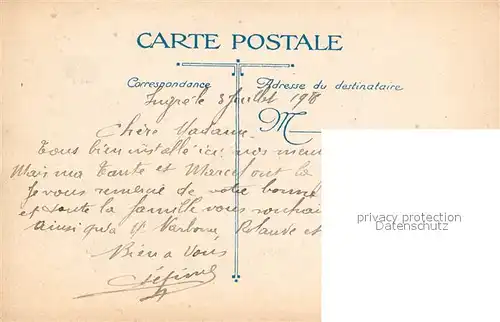 CARTE POSTALE
Correspondance Adresse du destinataire
le 3 Juillet
M
Chère Madame
Tous bien installé ici nos
Mais ma Tante et Marcel ont la
Je vous remercie de votre bonne
et toute la famille vous souhaite
ainsi qu'à Rolande et
Bien a Vous
privacy protection
Datenschutz